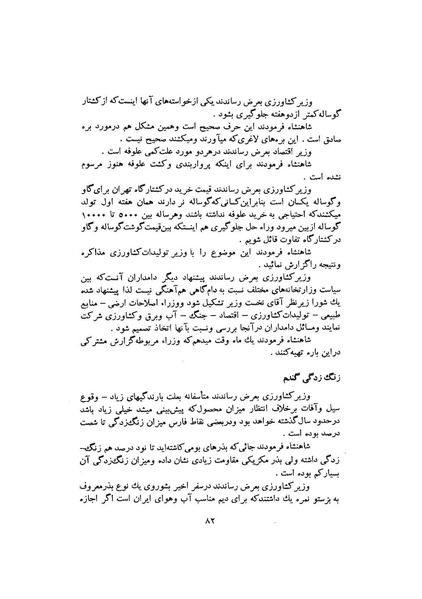 وزیر کشاورزی بعرض رساندند یکی از خواسته‌های آنها اینست که از کشتار
گوساله کمتر از دو هفته جلوگیری بشود .
شاهنشاه فرمودند این حرف صحیح است وهمین مشکل هم درمورد بره
صادق است . این بره‌های لاغری که میآورند ومیکشند صحیح نیست .
وزیر اقتصاد بعرض رساندند درهردو مورد علت کمی علوفه است .
شاهنشاه فرمودند برای اینکه پرواربندی وکشت علوفه هنوز مرسوم
نشده است .
وزیر کشاورزی بعرض رساندند قیمت خرید در کشتارگاه تهران برای گاو
و گوساله یکسان است بنابراین کسانی که گوساله نر دارند همان هفته اول تولد
میکشند که احتیاجی به خرید علوفه نداشته باشند وهرساله بین ۵۰۰۰ تا ۱۰۰۰۰
گوساله ازبین میرود وراه حل جلوگیری هم اینستکه بین قیمت گوشت گوساله و گاو
در کشتارگاه تفاوت قائل شویم .
شاهنشاه فرمودند این موضوع را با وزیر تولیدات کشاورزی مذاکره
ونتیجه را گزارش نمائید .
وزیر کشاورزی بعرض رساندند پیشنهاد دیگر دامداران آنست که بین
سیاست وزارتخانه‌های مختلف نسبت به دام گاهی هم‌آهنگی نیست لذا پیشنهاد شده
یك شورا زیرنظر آقای نخست وزیر تشکیل شود ووزراء اصلاحات ارضی – منابع
طبیعی – تولیدات کشاورزی – اقتصاد – جنگ – آب وبرق وکشاورزی شرکت
نمایند ومسائل دامداران درآنجا بررسی ونسبت بآنها اتخاذ تصمیم شود .
شاهنشاه فرمودند یك ماه وقت میدهم که وزراء مربوطه گزارش مشترکی
دراین باره تهیه کنند .
زنگ زدگی گندم
وزیر کشاورزی بعرض رساندند متأسفانه بعلت بارندگیهای زیاد – وقوع
سیل وآفات برخلاف انتظار میزان محصول که پیش‌بینی میشد خیلی زیاد باشد
درحدود سال گذشته خواهد بود ودربعضی نقاط فارس میزان زنگ‌زدگی تا شصت
درصد بوده است .
شاهنشاه فرمودند جائی که بذرهای بومی کاشته‌اید تا نود درصد هم زنگ–
زدگی داشته ولی بذر مکزیکی مقاومت زیادی نشان داده ومیزان زنگ‌زدگی آن
بسیار کم بوده است .
وزیر کشاورزی بعرض رساندند درسفر اخیر بشوروی یك نوع بذرمعروف
به بزستو نمره یك داشتند که برای دیم مناسب آب وهوای ایران است اگر اجازه
۸۲